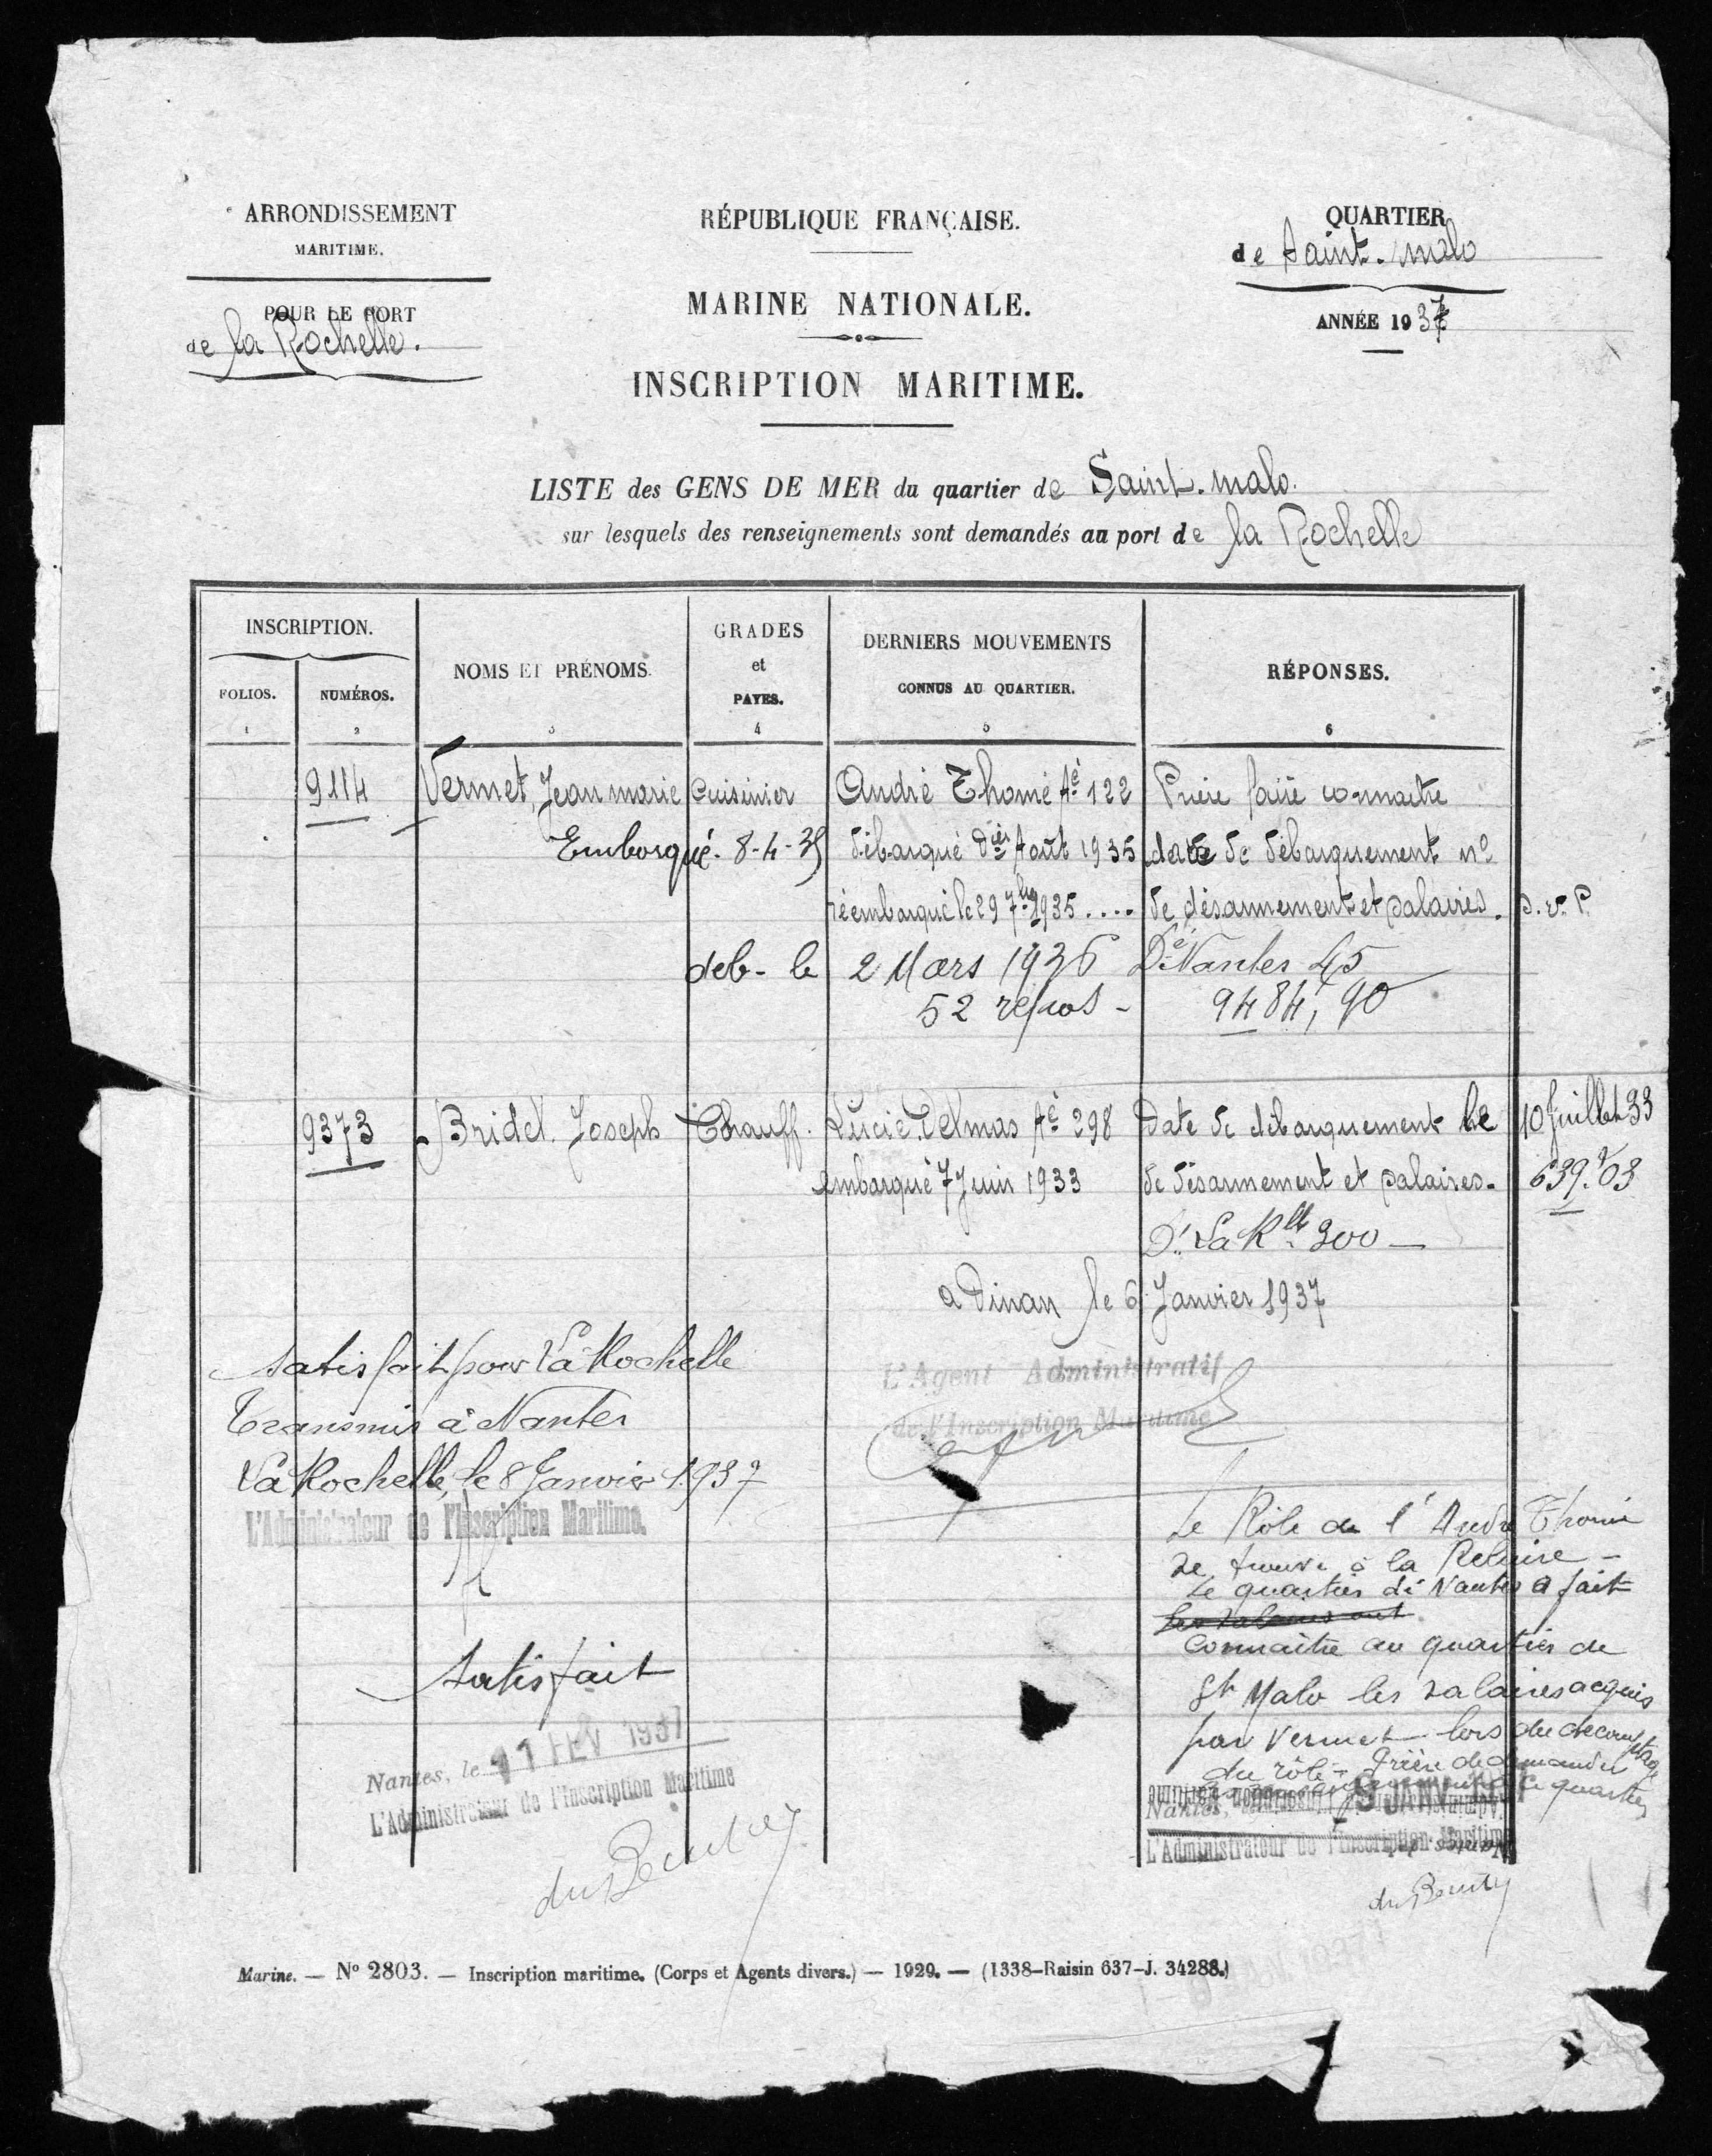 ARRONDISSEMENT
MARITIME.
POUR LE PORT
de la Rochelle.
RÉPUBLIQUE FRANÇAISE.
MARINE NATIONALE.
INSCRIPTION MARITIME.
QUARTIER
de Saint-malo
ANNÉE 1937
LISTE des GENS DE MER du quartier de Saint-malo.
sur lesquels des renseignements sont demandés au port de la Rochelle
INSCRIPTION.
FOLIOS.
NUMÉROS.
NOMS ET PRÉNOMS.
GRADES
et
PAYES.
DERNIERS MOUVEMENTS
CONNUS AU QUARTIER.
RÉPONSES.
1 2 3 4 5 6
9114 Vermet Jean marie Cuisinier André Thomé Aé 122 Prière faire connaitre
Embarqué. 8-4-35 débarqué Août 1935 date de débarquement no
réembarqué le 29 7bre 1935 .... de désarmement et salaires. S.v.P.
deb- le 2 Mars 1936 Dé Nantes 45
52 repos - 9484,90
9373 Bridel. Joseph Chauff. Lucie Delmas Aé 298 Date de débarquement le 10 Juillet 33
embarqué 7 Juin 1933 de désarmement et salaires. 639.03
D. La Rlle 300 -
a Dinan le 6 Janvier 1937
L'Agent Administratif
de l'Inscription Maritime
Satisfait pour La Rochelle
Transmis à Nantes
La Rochelle, le 8 Janvier 1937
L'Administrateur de l'Inscription Maritime.
Le Rôle de l'André Thomé
se trouve à la Reliure -
Le quartier de Nantes a fait
les salaires ont
connaitre au quartier de
St Malo les salaires acquis
par Vermet lors du decomptage
du rôle - Prière de demander
ce quartier
Nantes, 9 JANV
L'Administrateur de l'Inscription Maritime
Satisfait
Nantes, le 11 FEV 1937
L'Administrateur de l'Inscription Maritime
Marine. — No 2803. — Inscription maritime. (Corps et Agents divers.) — 1929. — (1338-Raisin 637-J. 34288.)